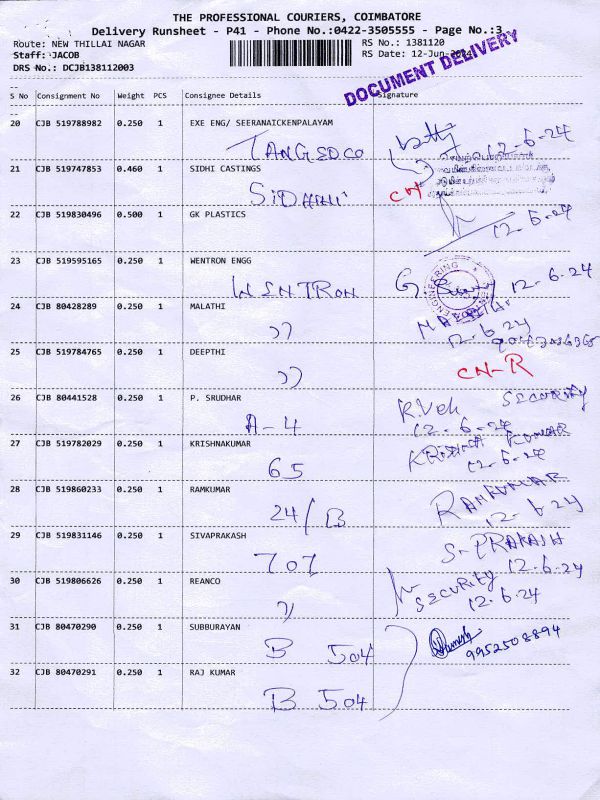 THE PROFESSIONAL COURIERS, COIMBATORE
Delivery Runsheet - P41 - Phone No.:0422-3505555 - Page No.:3
Route: NEW THILLAI NAGAR RS No.: 1381120
Staff: JACOB RS Date: 12-Jun-2024
DRS No.: DCJB138112003
DOCUMENT DELIVERY
S No Consignment No Weight PCS Consignee Details Signature
20 CJB 519788982 0.250 1 EXE ENG/ SEERANAICKENPALAYAM
TANGEDCO 12-6-24
21 CJB 519747853 0.460 1 SIDHI CASTINGS
SIDHHI CH
22 CJB 519830496 0.500 1 GK PLASTICS
12-6-24
23 CJB 519595165 0.250 1 WENTRON ENGG
WENTRON 12-6-24
ENGINEERING
24 CJB 80428289 0.250 1 MALATHI
)) 12.6.24
25 CJB 519784765 0.250 1 DEEPTHI
)) CN-R
26 CJB 80441528 0.250 1 P. SRUDHAR
A-4 SECURITY
12-6-24
27 CJB 519782029 0.250 1 KRISHNAKUMAR
65 KRISHNA KUMAR
12-6-24
28 CJB 519860233 0.250 1 RAMKUMAR
24/B RAMKUMAR
12-6-24
29 CJB 519831146 0.250 1 SIVAPRAKASH
707 S-PRAKASH
12-6-24
30 CJB 519806626 0.250 1 REANCO
) SECURITY
12-6-24
31 CJB 80470290 0.250 1 SUBBURAYAN
B 504 9952508894
32 CJB 80470291 0.250 1 RAJ KUMAR
B 504